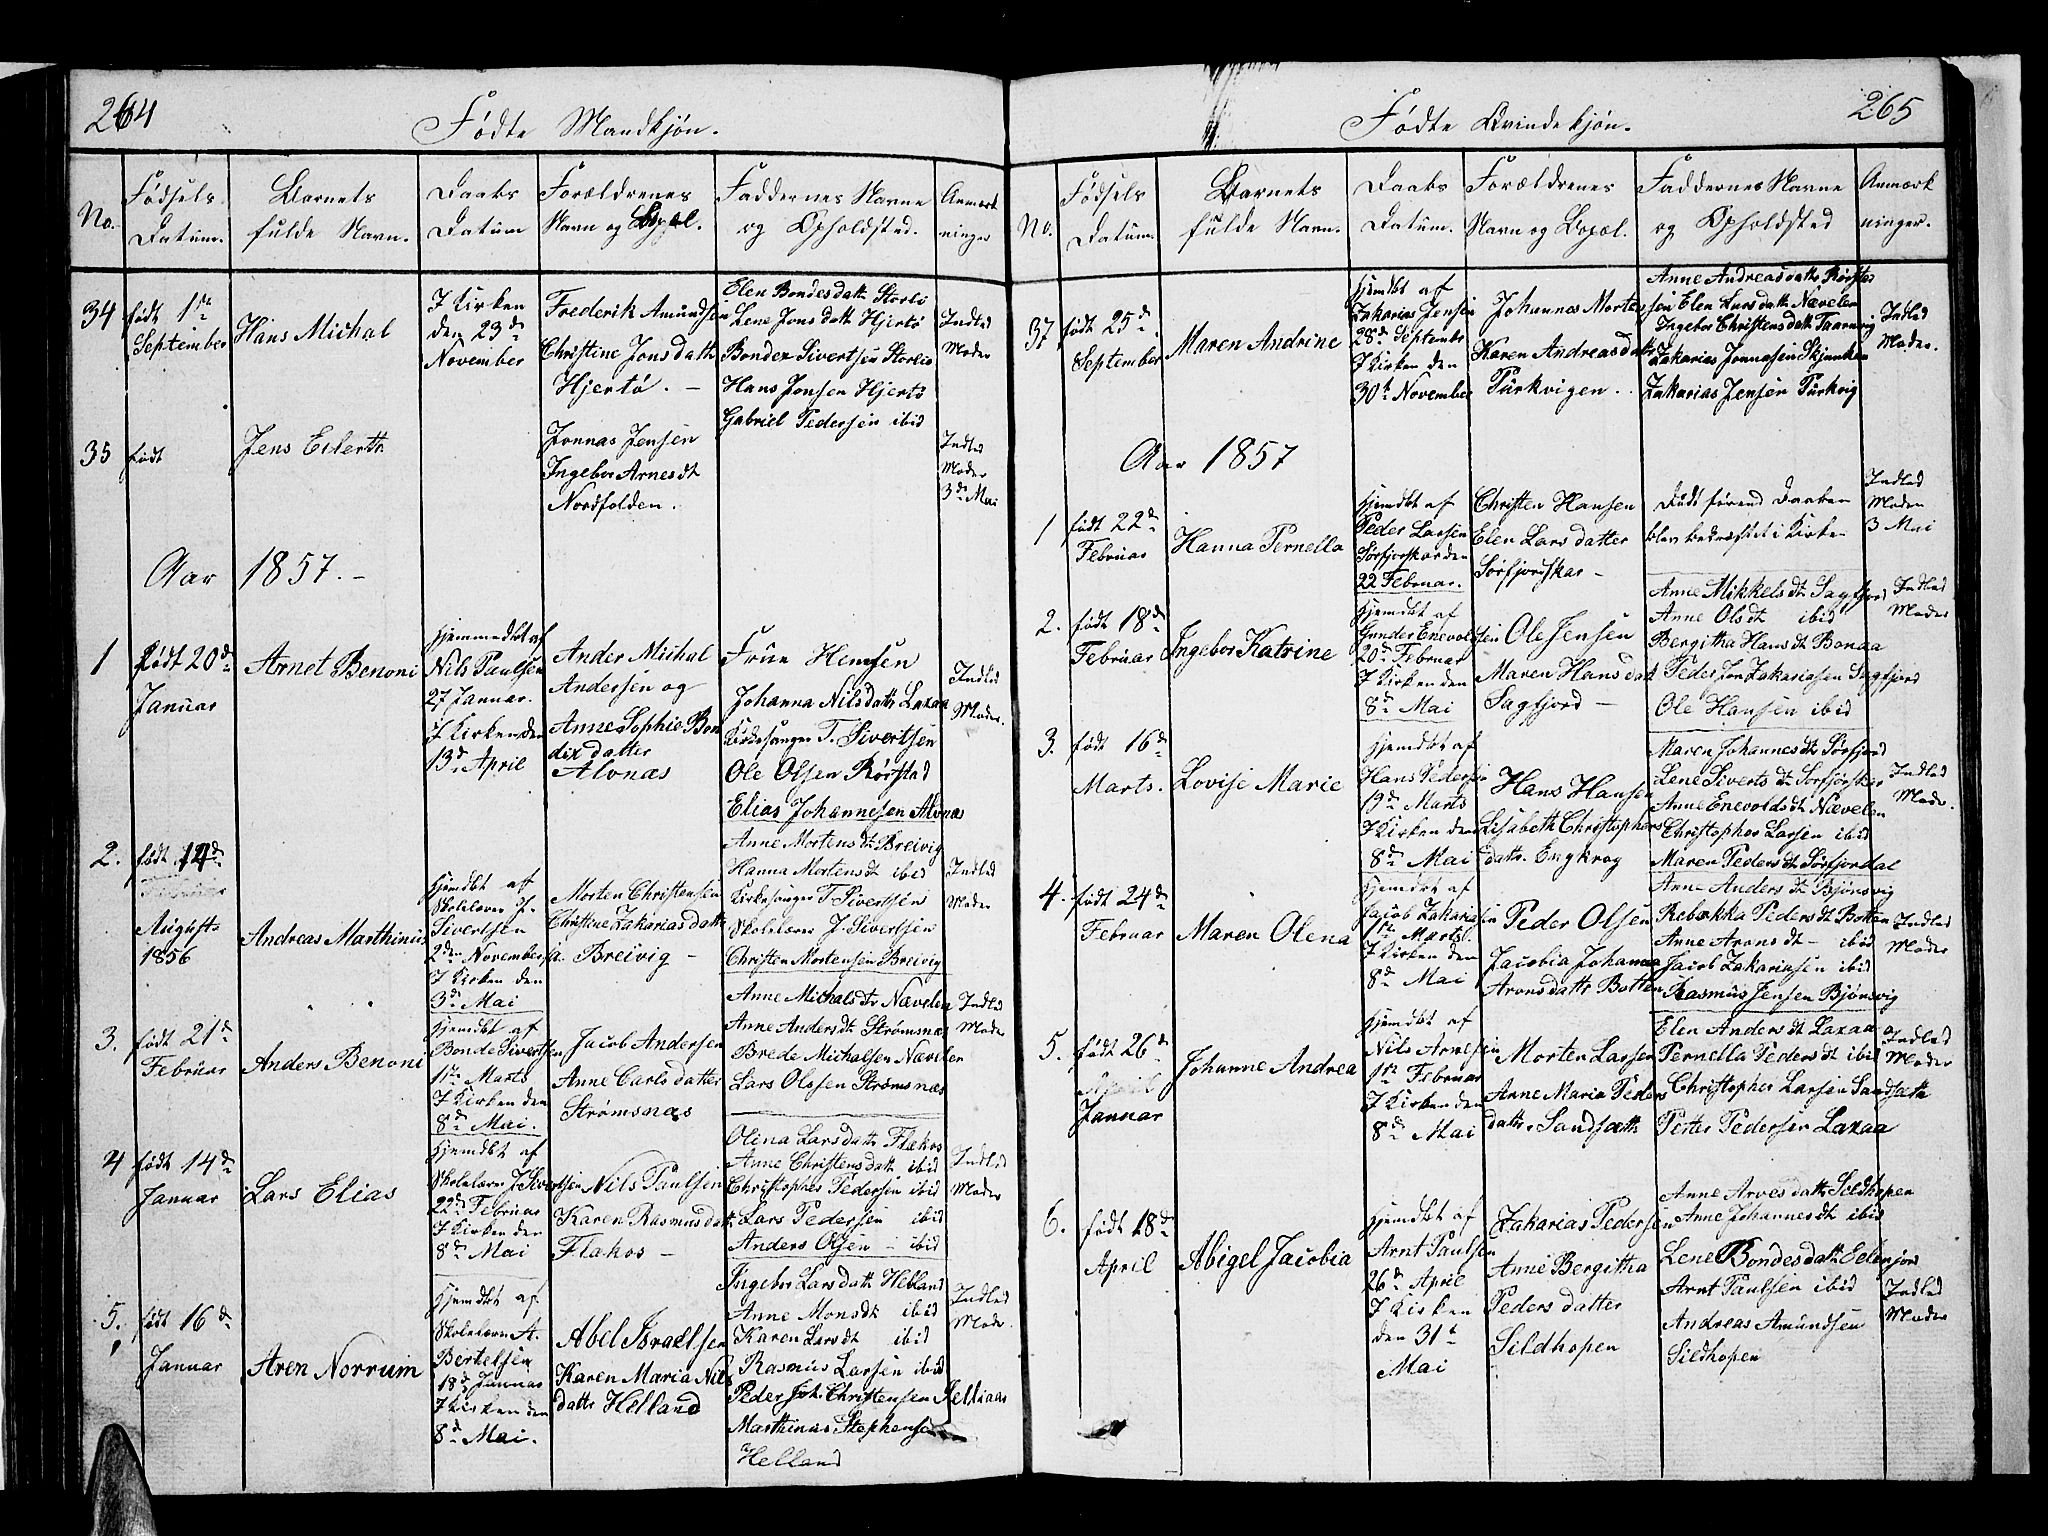 264
Fødte Mandkjøn.
No.
Fødsels
Datum.
Barnets
fulde Navn.
Daabs
Datum
Forældrenes
Navn og Bopæl.
Faddernes Navne
og Opholdsted.
Anmærk
ninger
34
født 1ste
September
Hans Michal
I Kirken
den 23de
November
Frederik Amundsen
Christine Jonsdattr
Hjertø. –
Elen Bondesdattr Storlø
Lene Jonsdattr Hjertø
Bonden Sivertsen Storlø
Hans Jonsen Hjertø
Gabriel Pedersen ibid
Indled
Moder
35
født
Jens Eilerth
Jonnas Jensen
Ingebor Arnesdt
Nordfolden.
Indled
Moder
3de Mai
Aar 1857. –
1
Født 20de
Januar
Arnet Benoni
Hjemmedbt af
Nils Paulsen
27 Januar.
I Kirken den
13de April
Ander Michal
Andersen og
Anne Sophie Bon
dix datter
Alvnæs
Frue Hemsen
Johanna Nilsdattr Laxaa
Kirkesanger T. Sivertsen
Ole Olsen Rørstad
Elias Johannesen Alvnæs
Indled
Moder
2.
født 14de
August
1856
Andreas Marthinus
Hjemdbt af
Skolelærer J.
Sivertsen
2den November
I Kirken den
3de Mai
Morten Christensen
Christine Zakariasdattr
Breivig –
Anne Mortensdt Breivig
Hanna Mortensdt ibid
Kirkesanger T. Sivertsen
Skolelærer J. Sivertsen
Christen Mortensen Breivig
Indled
Moder
3.
født 21de
Februar
Anders Benoni
Hjemdbt af
Bonde Sivertsen
1ste Marts
I Kirken den
8de Mai.
Jacob Andersen
Anne Carlsdatter
Strømsnæs
Anne Michalsdtr Nævelen
Anne Andersdt Strømsnæs
Brede Michalsen Nævelen
Lars Olssen Strømsnæs
Indled
Moder
4
født 14de
Januar
Lars Elias
Hjemdbt af
Skolelærer J Sivertsen
22de Februar
I Kirken den
8de Mai
Nils Paulsen
Karen Rasmusdatt
Flakos –
Olina Larsdattr Flakos
Anne Christensdattr ibid
Christopher Pedersen ibid
Lars Pedersen ibid
Anders Olsen – ibid
Indled
Moder
5.
født 16de
Januar
Aren Norrum
Hjemdbt af
Skolelærer A.
Berkelsen
18de Januar
I Kirken den
8de Mai.
Abel Israelsen
Karen Maria Nils
dattr Helland
Ingebor Larsdattr Helland
Anne Monsdt ibid
Karen Larsdt ibid
Rasmus Larsen ibid
Peder Joh. Christensen
Marthinus Stephensen
Helland
Indled
Moder
265
Fødte Qvindekjøn.
No.
Fødsels
Datum.
Barnets
fulde Navn.
Daabs
Datum.
Forældrenes
Navn og Bopæl.
Faddernes Navne
og Opholdsted
Anmærk
ninger.
37
født 25de
September
Maren Andrine
Hjemdbt af
Zakarias Jensen
28de Septembr
I Kirken den
30te November
Johannes Mortensen
Karen Andreasdattr
Pürkvigen.
Anne Andreasdattr Rørstad
Elen Larsdattr Nævelen
Ingebor Christensdattr Taarnvig
Zakarias Jonnasen Skjanken
Zakarias Jensen Pürkvig
Indled
Moder.
Aar 1857
1
født 22de
Februar
Hanna Pernella
Hjemdbt af
Peder Larsen
Sørfjorskar den
22 Februar.
Christen Hansen
Elen Larsdatter
Sørfjordskar –
Død førend Daaben
blev bekræftet i Kirken
Indled
Moder
3 Mai
2.
født 18de
Februar
Ingebor Katrine
Hjemdbt af
Gunder Enevoldsen
20de Februar
I Kirken den
8de Mai
Ole Jensen
Maren Hansdat
Sagfjord –
Anne Mikkelsdt Sagfjord
Anne Olsdt ibid
Bergitha Hansdt Bonaa
Peder Jon Zakariasen Sagfjord
Ole Hansen ibid
Indled
Moder
3.
født 16de
Marts.
Lovise Marie
Hjemdbt af
Hans Pedersen
19de Marts
I Kirken den
8de Mai
Hans Hansen
Lisabeth Christophers
dattr. Engkrog
Maren Johannesdt Sørfjord
Lene Sivertsdt Sørfjorskar
Anne Enevoldsdt Nævelen
Christopher Larsen ibid
Maren Pedersdt Sørfjordal
Indled
Moder.
4.
født 24de
Februar
Maren Olena
Hjemdbt af
Jacob Zakariasen
1ste Marts.
I Kirken den
8de Mai
Peder Olsen
Jacobia Johanna
Aronsdattr Botten
Anne Andersdt Bjønsvig
Rebækka Pedersdt Botten
Anne Aronsdt – ibid
Jacob Zakariasen ibid
Rasmus Jensen Bjønsvig
Indled
Moder
5.
født 26de
Januar
Johanne Andrea
Hjemdbt af
Nils Arnesen
1ste Februar
I Kirken den
8de Mai
Morten Larsen
Anne Maria Peders
dattr Sandsætr
Elen Andersdt Laxaa
Pernella Pedersdt ibid
Christopher Larsen Sandsæth
Petter Pedersen Laxaa
Indled
Moder
6.
født 18de
April
Abigel Jacobia
Hjemdbt af
Arnt Paulsen
26de April
I Kirken
den 31te
Mai
Zakarias Pedersen
Anne Bergitha
Pedersdatter
Sildhopen
Anne Arnesdattr Sildhopen
Anne Johannesdt ibid
Lene Bondesdattr
Arnt Paulsen ibid
Andreas Amundsen
Sildhopen
Indled
Moder